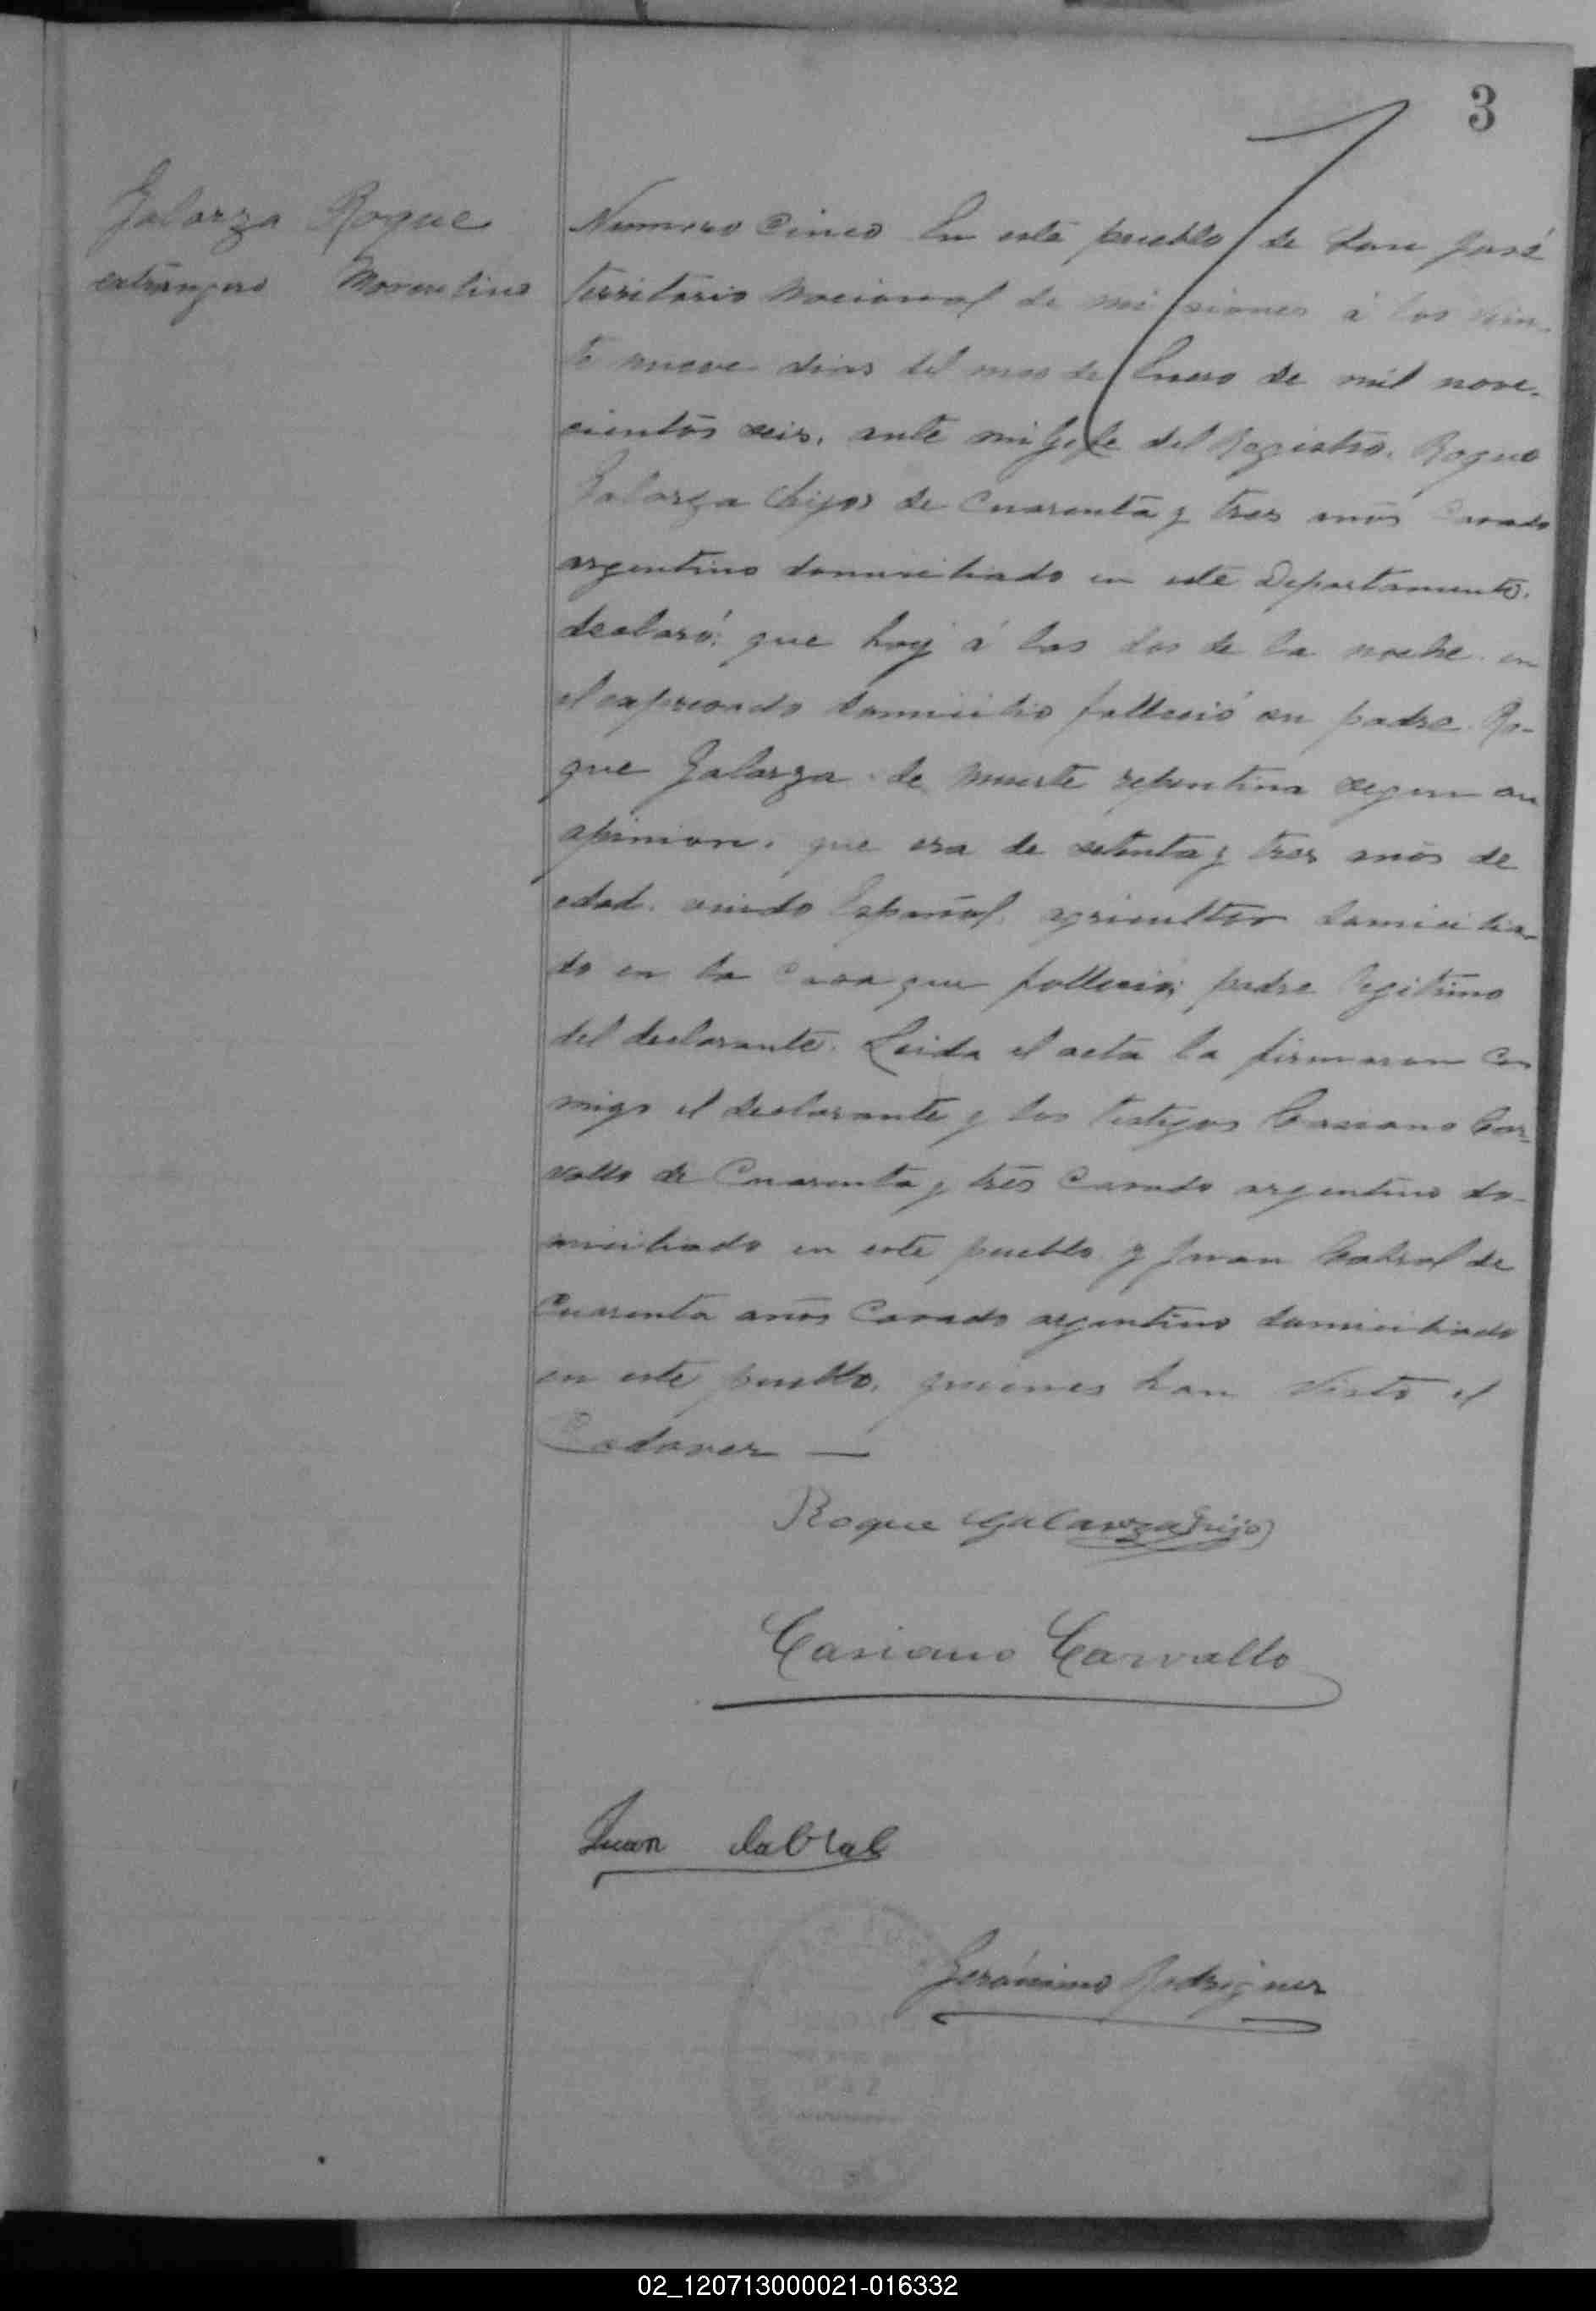 3
Galarza Roque
extrangero Masculino
Numero Cinco En este pueblo de San José
territorio Nacional de Misiones á los vein-
te nueve dias del mes de Enero de mil nove-
cientos seis, ante mi Gefe del Registro, Roque
Galarza (hijo) de Cuarenta y tres años Casado
argentino domiciliado en este Departamento.
declaró: que hoy á las dos de la noche en
el expresado domicilio falleció su padre Ro-
que Galarza de muerte repentina segun su
opinion, que era de setenta y tres años de
edad. viudo Español, agricultor domicilia-
do en la casa que falleció; padre legitimo
del declarante. Leida el acta la firmaron con
migo el declarante y los testigos Casiano Car-
vallo de Cuarenta y tres Casado argentino do-
miciliado en este pueblo y Juan Cabral de
Cuarenta años Casado argentino domiciliado
en este pueblo, quienes han visto el
Cadaver —
Roque Galarza (hijo)
Casiano Carvallo
Juan Cabral
Gerónimo Rodriguez
02_120713000021-016332